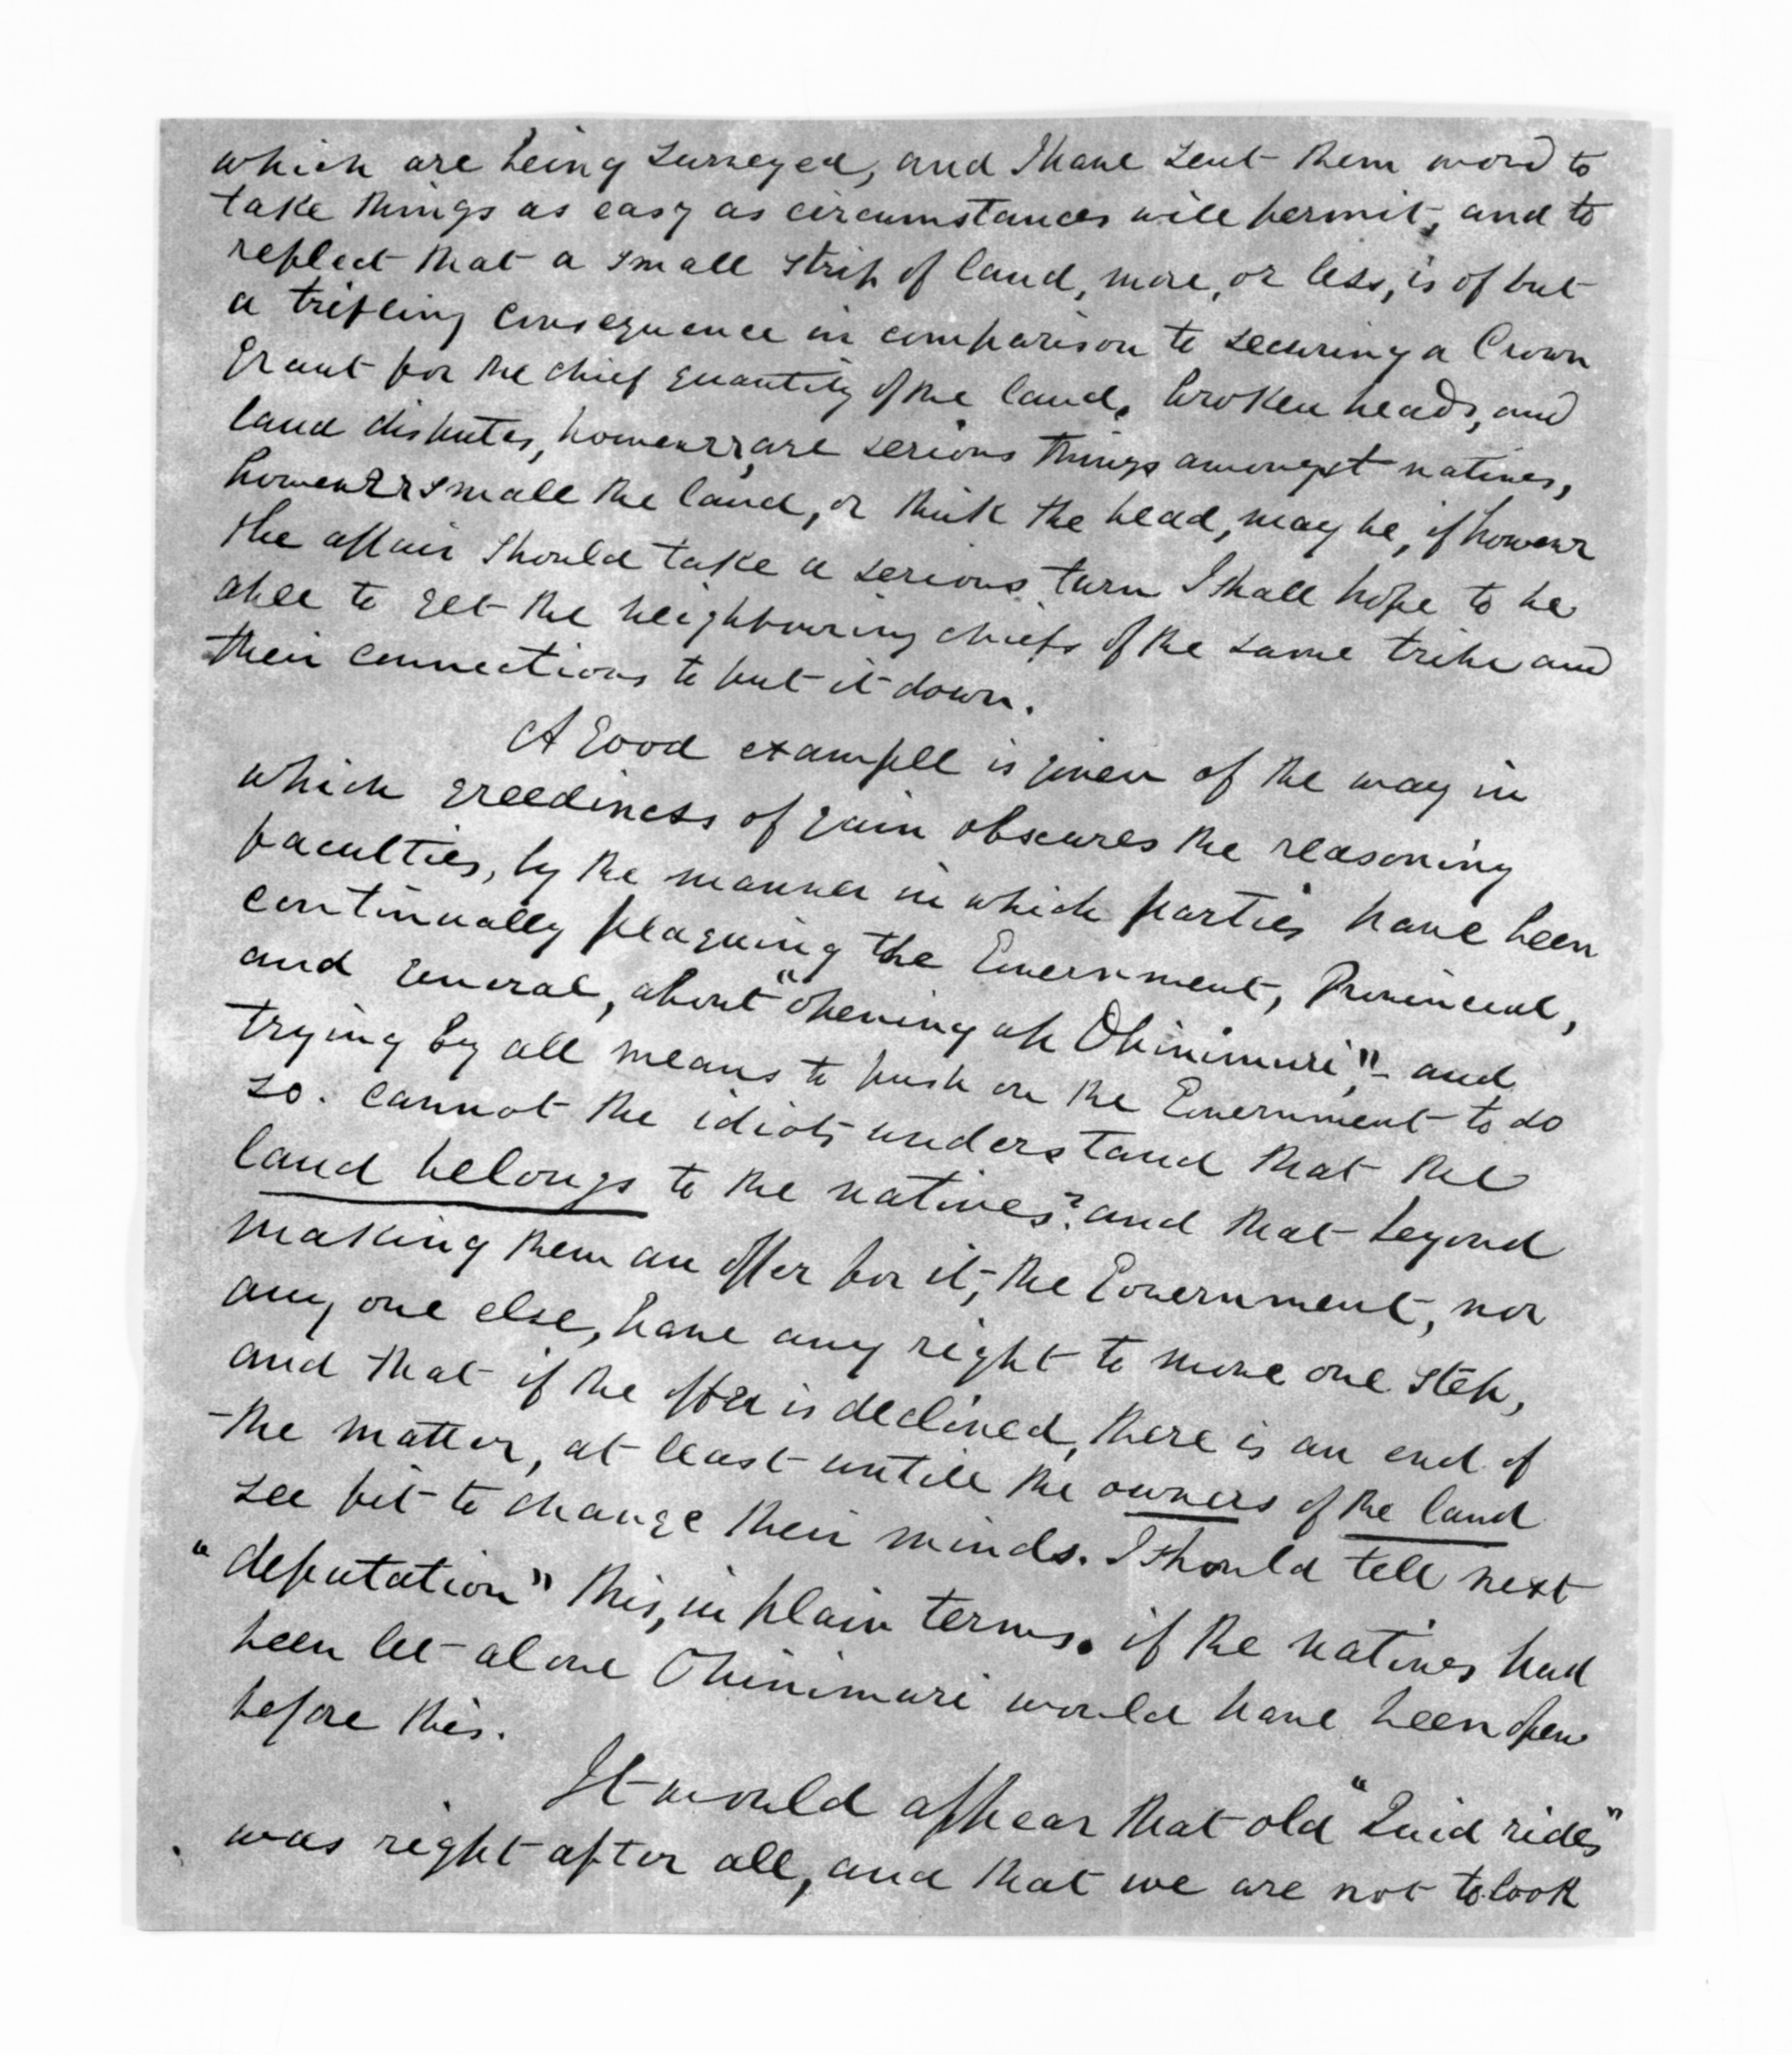 which are being surveyed, and I have sent them word to
take things as easy as circumstances will permit, and to
reflect that a small strip of land, more, or less, is of but
a trifling consequence in comparison to securing a Crown
Grant for the chief quantity of the land. broken heads, and
land disputes, however, are serious things amongst natives,
however small the land, or thick the head, may be, if however
the affair should take a serious turn I shall hope to be
able to get the neighbouring chiefs of the same tribe and
their connections to put it down.
A good example is given of the way in
which greediness of gain obscures the reasoning
faculties, by the manner in which parties have been
continually plaguing the Government, Provincial,
and General, about "opening up Ohinimuri", - and
trying by all means to push on the Government to do
so. cannot the idiots understand that the
land belongs to the natives? and that beyond
making them an offer for it, the Government, nor
any one else, have any right to move one step,
and that if the offer is declined, there is an end of
the matter, at least untill the owners of the land
see fit to change their minds. I should tell next
"deputation" this, in plain terms. if the natives had
been let alone Ohinimuri would have been open
before this.
It would appear that old "Quid rides"
was right after all, and that we are not to look